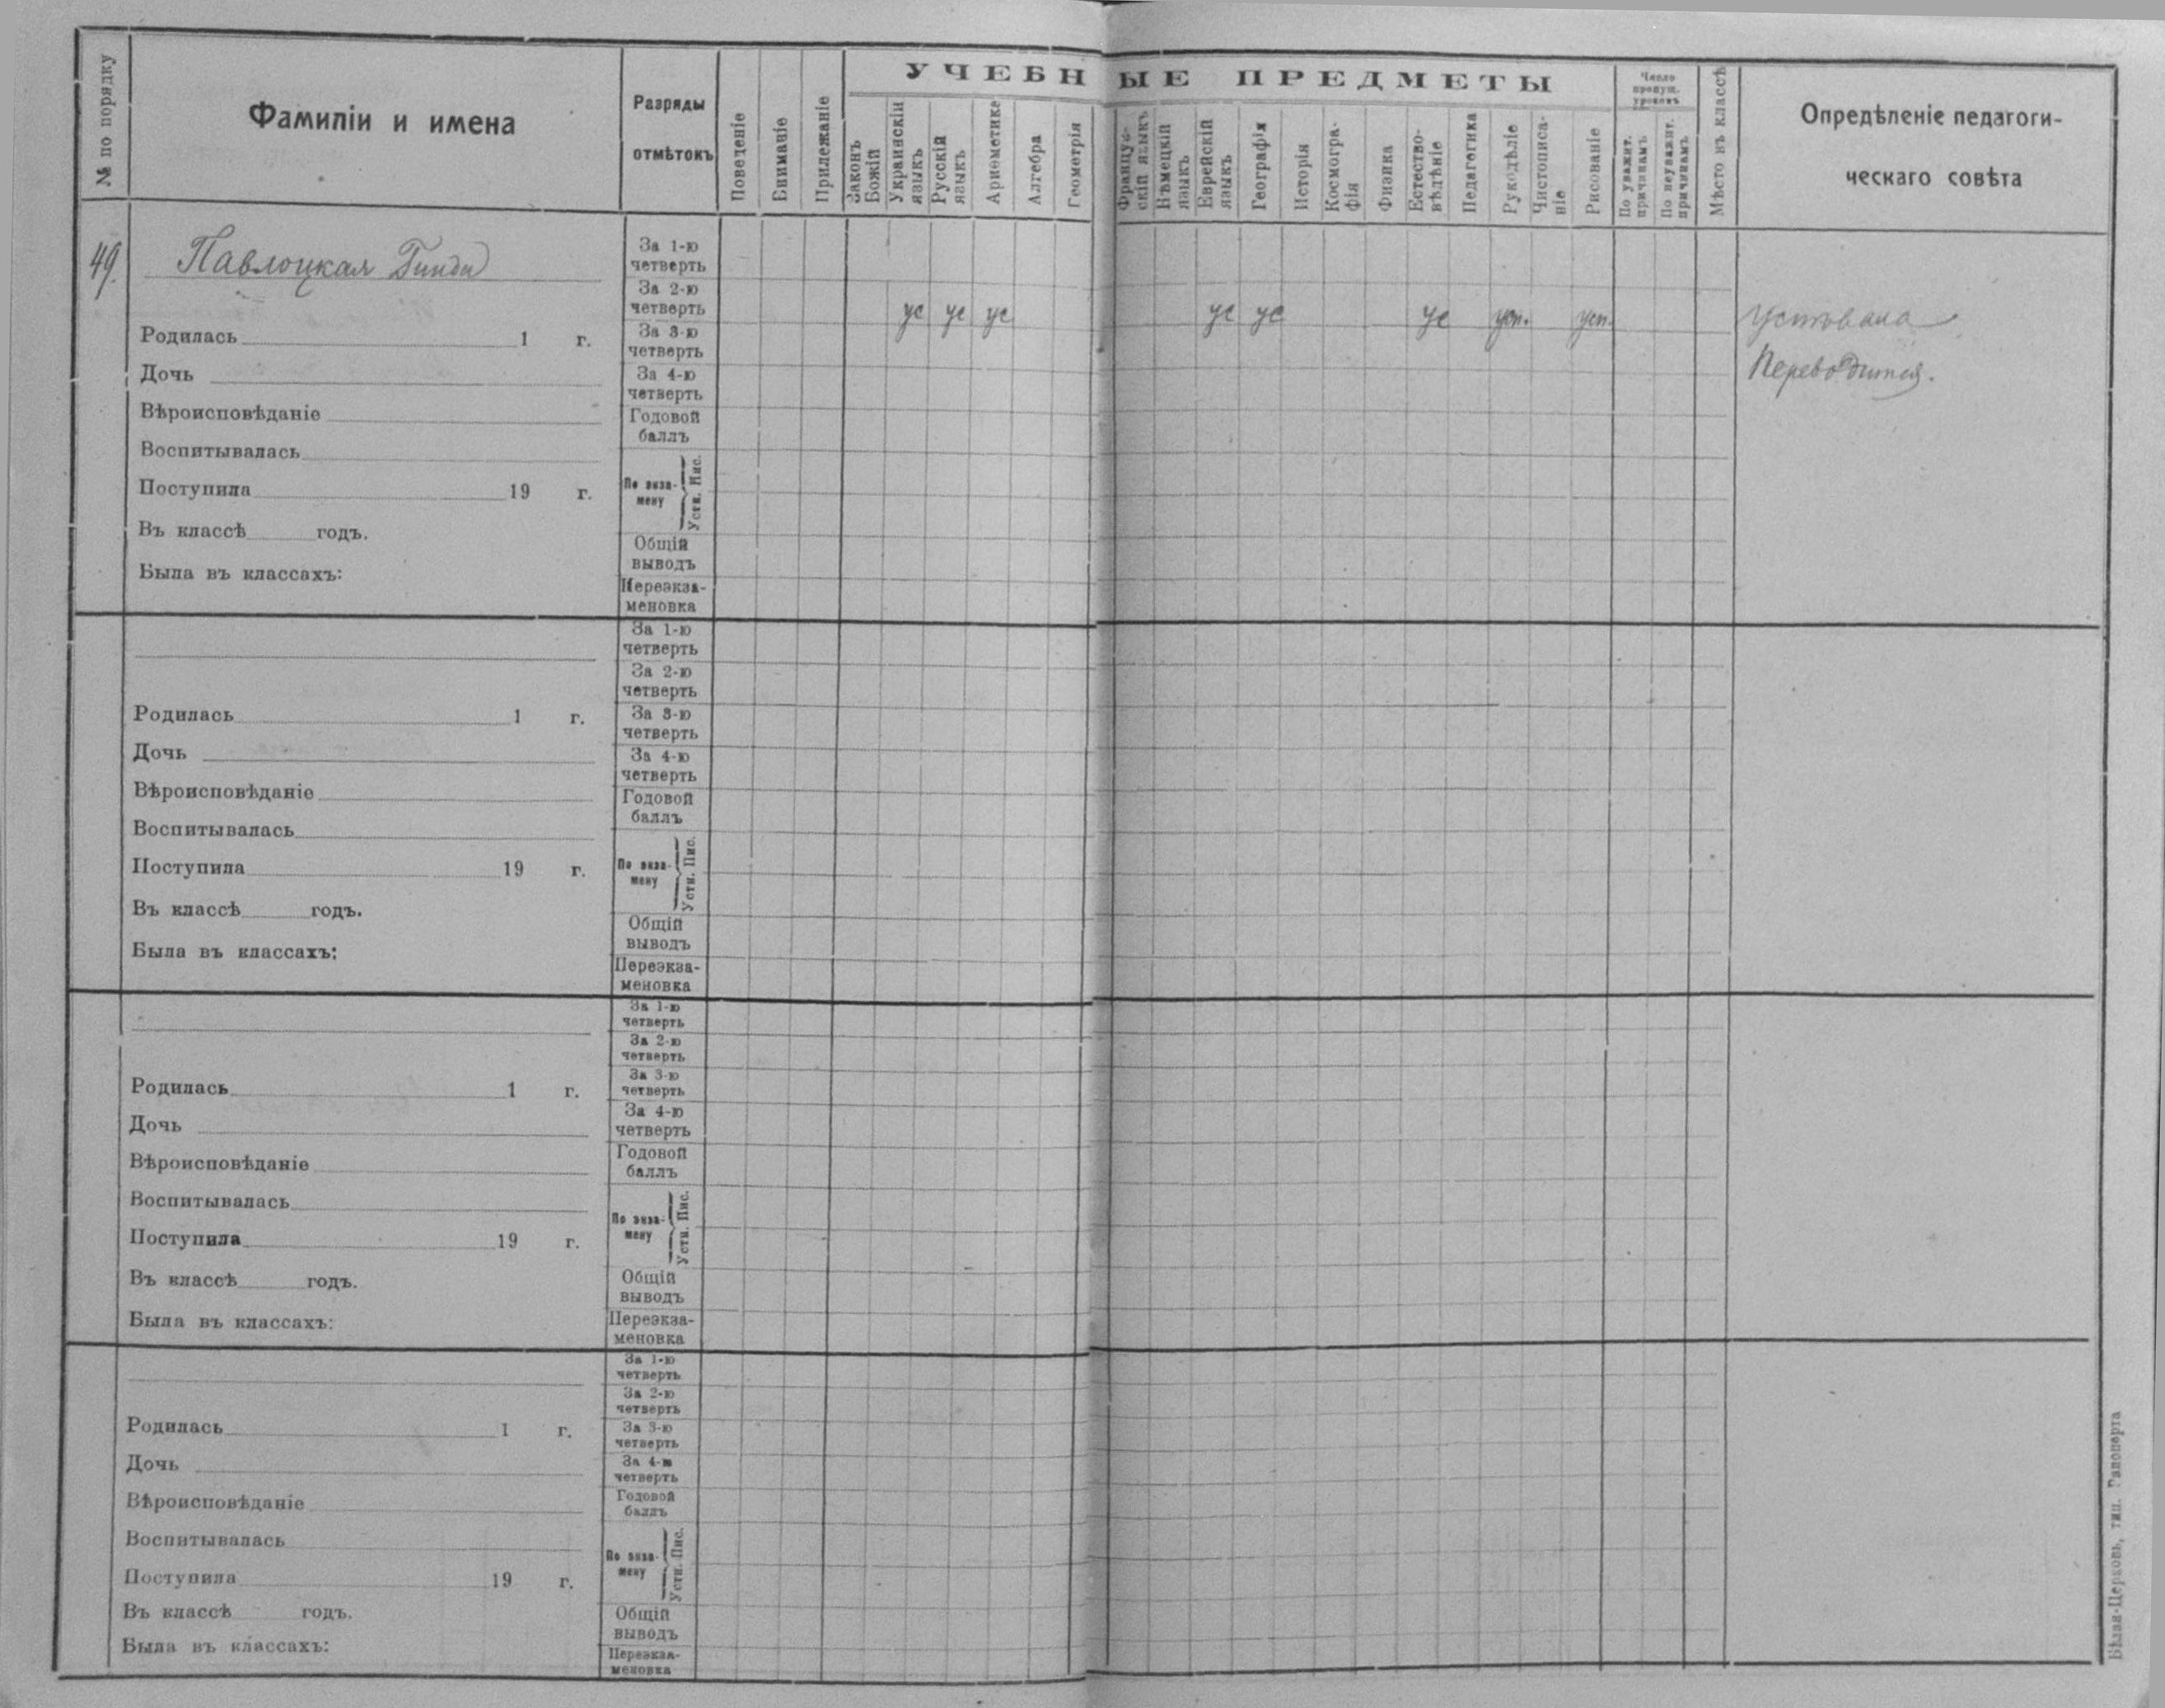 № по порядку
Фамиліи и имена
Разряды
отмѣтокъ
Поведеніе
Вниманіе
Прилежаніе
УЧЕБНЫЕ ПРЕДМЕТЫ
Законъ
Божій
Украинскій
языкъ
Русскій
языкъ
Ариѳметика
Алгебра
Геометрія
Француз-
скій языкъ
Нѣмецкій
языкъ
Еврейскій
языкъ
Географія
Исторія
Космогра-
фія
Физика
Естество-
вѣдѣніе
Педагогика
Рукодѣліе
Чистописа-
ніе
Рисованіе
Число
пропущ.
уроковъ
По уважит.
причинамъ
По неуважит.
причинамъ
Мѣсто въ классѣ
Опредѣленіе педагоги-
ческаго совѣта
49.
Павлоцкая
За 1-ю
четверть
За 2-ю
четверть
ус ус ус ус ус ус усп. усп.
Родилась 1 г.
За 3-ю
четверть
Дочь
За 4-ю
четверть
Переводится.
Вѣроисповѣданіе
Годовой
баллъ
Воспитывалась
Поступила 19 г.
По экза-
мену
Устн. Пис.
Въ классѣ годъ.
Общій
выводъ
Была въ классахъ:
Переэкза-
меновка
За 1-ю
четверть
За 2-ю
четверть
Родилась 1 г.
За 3-ю
четверть
Дочь
За 4-ю
четверть
Вѣроисповѣданіе
Годовой
баллъ
Воспитывалась
Поступила 19 г.
По экза-
мену
Устн. Пис.
Въ классѣ годъ.
Общій
выводъ
Была въ классахъ:
Переэкза-
меновка
За 1-ю
четверть
За 2-ю
четверть
Родилась 1 г.
За 3-ю
четверть
Дочь
За 4-ю
четверть
Вѣроисповѣданіе
Годовой
баллъ
Воспитывалась
Поступила 19 г.
По экза-
мену
Устн. Пис.
Въ классѣ годъ.
Общій
выводъ
Была въ классахъ:
Переэкза-
меновка
За 1-ю
четверть
За 2-ю
четверть
Родилась 1 г.
За 3-ю
четверть
Дочь
За 4-ю
четверть
Вѣроисповѣданіе
Годовой
баллъ
Воспитывалась
Поступила 19 г.
По экза-
мену
Устн. Пис.
Въ классѣ годъ.
Общій
выводъ
Была въ классахъ:
Переэкза-
меновка
Бѣлая-Церковь, тип. Рапопорта